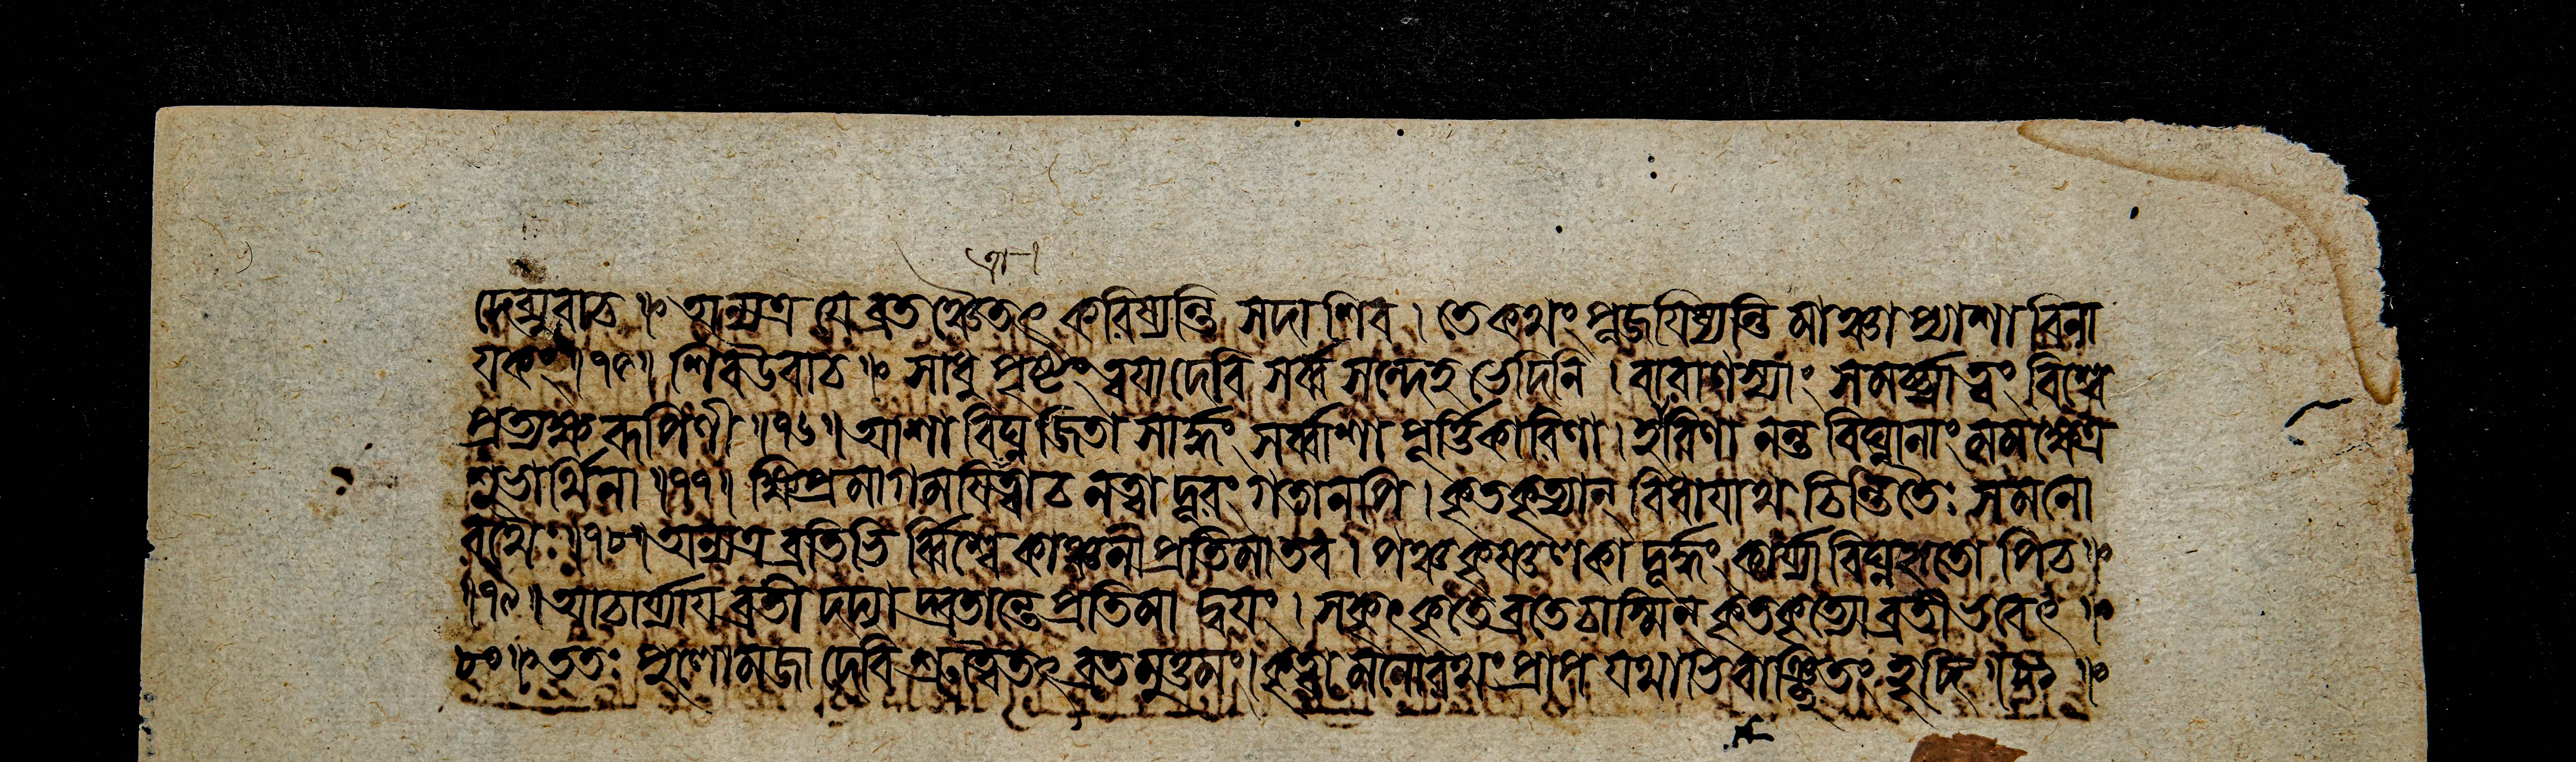 দেব্যুবাচ ॥ অন্যত্র যে ব্রতঞ্চৈতৎ করিষ্যন্তি সদাশিব । তে কথং পূজয়িষ্যন্তি মাঞ্চাপ্যাশাবিনা
য়কং ॥ ৭৫ ॥ শিব উবাচ ॥ সাধু পৃষ্টং ত্বয়া দেবি সর্ব্ব সন্দেহ ভেদিনি । বারাণস্যাং সমর্চ্চ্যা ত্বং বিশ্বে
প্রত্যক্ষ রূপিণী ॥ ৭৬ ॥ আশা বিঘ্নজিতা সার্দ্ধং সর্ব্বাশা পূর্ত্তিকারিণা । হরিণা নন্ত বিঘ্নানাং মমক্ষেত্র
শুভার্থিনা ॥ ৭৭ ॥ ক্ষিপ্রমাগময়িত্বাচ নত্বা দূরং গতানপি । কৃতকৃত্যান্ বিধায়াথ চিন্তিতৈঃ সমনো
রথৈঃ ॥ ৭৮ ॥ অন্যত্র ব্রতিভির্ব্বিশ্বে কাঞ্চনী প্রতিমা তব । পঞ্চকৃষ্ণলকাদূর্দ্ধং কার্য্যা বিঘ্নহৃতো পিচ ॥
॥ ৭৯ ॥ আচার্য্যায় ব্রতী দদ্যাদ্ব্রতান্তে প্রতিমা দ্বয়ং । সকৃৎ কৃতে ব্রতে চাস্মিন্ কৃতকৃত্যো ব্রতী ভবেৎ ॥
৮০ ॥ ততঃ পুলোমজা দেবি শ্রুত্বৈতৎ ব্রতমুত্তমং । কৃত্বা মনোরথং প্রাপ যথাভিবাঞ্ছিতং হৃদি ॥ ৮১ ॥